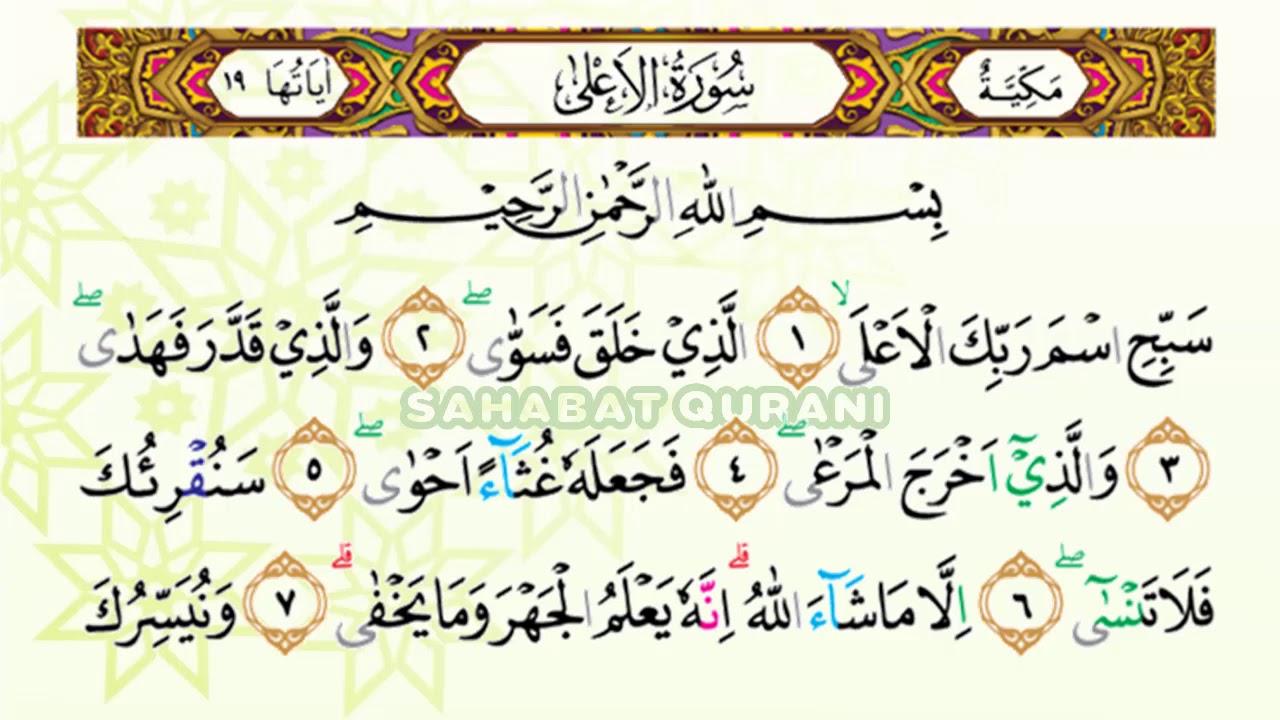 مَكِّيَّةٌ سُوْرَةُ الْاَعْلٰى اٰيَاتُهَا ١٩
بِسْمِ اللّٰهِ الرَّحْمٰنِ الرَّحِيْمِ
سَبِّحِ اسْمَ رَبِّكَ الْاَعْلَىۙ ١ الَّذِيْ خَلَقَ فَسَوّٰىۖ ٢ وَالَّذِيْ قَدَّرَ فَهَدٰىۖ
SAHABAT QURANI
٣ وَالَّذِيْٓ اَخْرَجَ الْمَرْعٰىۖ ٤ فَجَعَلَهٗ غُثَاۤءً اَحْوٰىۖ ٥ سَنُقْرِئُكَ
فَلَا تَنْسٰىٓۖ ٦ اِلَّا مَا شَاۤءَ اللّٰهُۗ اِنَّهٗ يَعْلَمُ الْجَهْرَ وَمَا يَخْفٰىۗ ٧ وَنُيَسِّرُكَ